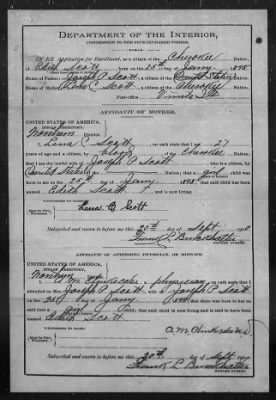 DEPARTMENT OF THE INTERIOR,
COMMISSION TO THE FIVE CIVILIZED TRIBES.
IN RE Application for Enrollment, as a citizen of the Cherokee Nation,
of Edith Scott, born on the 25th day of Jany, 1898
Name of Father: Joseph P. Scott a citizen of the United States Nation.
Name of Mother: Lena C. Scott a citizen of the Cherokee Nation.
Post-office Vinita I.T.
AFFIDAVIT OF MOTHER.
UNITED STATES OF AMERICA,
INDIAN TERRITORY,
Northern District.
I, Lena C. Scott, on oath state that I am 27
years of age and a citizen, by blood, of the Cherokee Nation;
that I am the lawful wife of Joseph P. Scott, who is a citizen, of the
United States; that a girl child was
born to me on 25th day of Jany, 1898, that said child has been
named Edith Scott, and is now living.
Lena C. Scott
WITNESSES TO MARK:
Subscribed and sworn to before me this 20th day of Sept, 1900
NOTARY PUBLIC.
AFFIDAVIT OF ATTENDING PHYSICIAN, OR MIDWIFE.
UNITED STATES OF AMERICA,
INDIAN TERRITORY,
Northern District.
I, A. M. Clinkscales, a physician, on oath state that I
attended on Mrs. Joseph P. Scott, wife of Joseph P. Scott
on the 25 day of Jany, 1898, that there was born to her on said date a
girl child; that said child is now living and is said to have been
named Edith Scott
A. M. Clinkscales
WITNESSES TO MARK:
Subscribed and sworn to before me this 20th day of Sept, 1900
NOTARY PUBLIC.